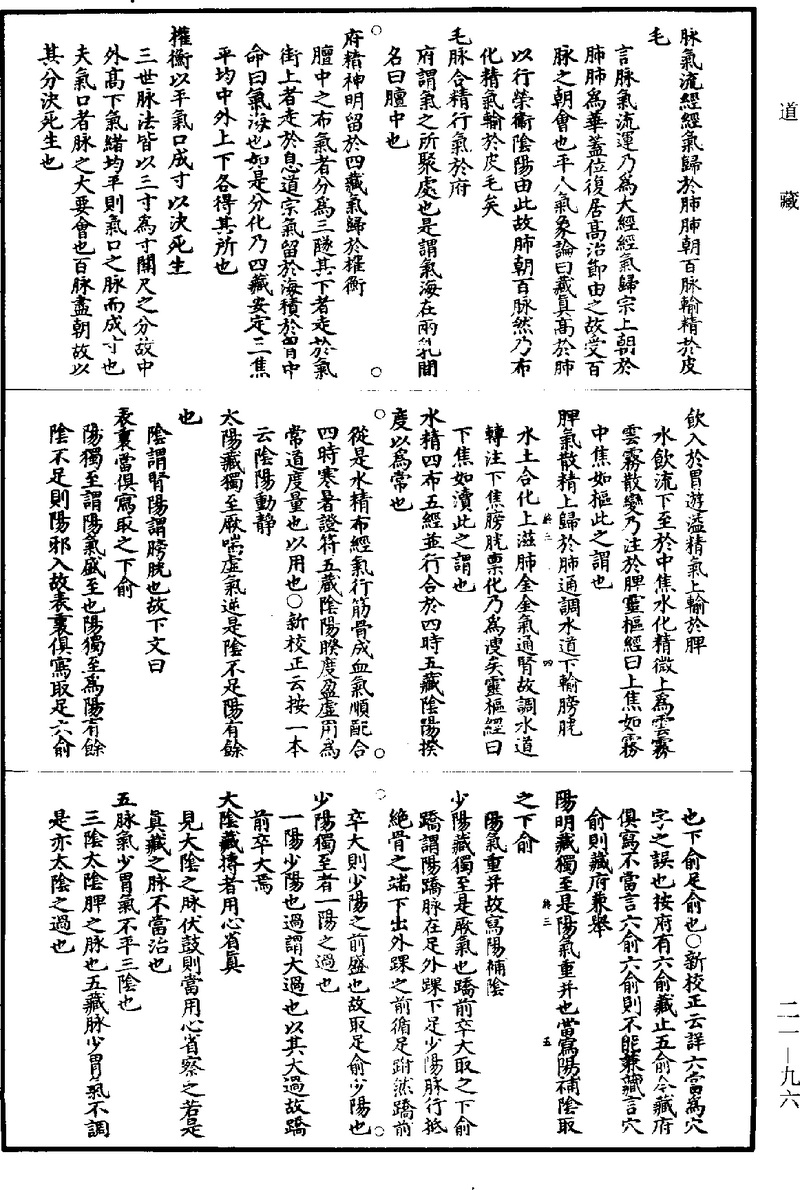 道藏
二一—九六
脉氣流經經氣歸於肺肺朝百脉輸精於皮
毛
言脉氣流運乃爲大經經氣歸宗上朝於
肺肺爲華蓋位復居高治節由之故受百
脉之朝會也平人氣象論曰藏真高於肺
以行榮衞陰陽由此故肺朝百脉然乃布
化精氣輸於皮毛矣
毛脉合精行氣於府
府謂氣之所聚處也是謂氣海在兩乳間
名曰膻中也
府精神明留於四藏氣歸於權衡
膻中之布氣者分爲三隧其下者走於氣
街上者走於息道宗氣留於海積於胷中
命曰氣海也如是分化乃四藏安定三焦
平均中外上下各得其所也
權衡以平氣口成寸以決死生
三世脉法皆以三寸爲寸關尺之分故中
外高下氣緒均平則氣口之脉而成寸也
夫氣口者脉之大要會也百脉盡朝故以
其分決死生也
飲入於胃遊溢精氣上輸於脾
水飲流下至於中焦水化精微上爲雲霧
雲霧散變乃注於脾靈樞經曰上焦如霧
中焦如樞此之謂也
脾氣散精上歸於肺通調水道下輸膀胱
水土合化上滋肺金金氣通腎故調水道
轉注下焦膀胱禀化乃爲溲矣靈樞經曰
下焦如瀆此之謂也
水精四布五經並行合於四時五藏陰陽揆
度以爲常也
從是水精布經氣行筋骨成血氣順配合
四時寒暑證符五藏陰陽揆度盈虚用爲
常道度量也以用也○新校正云按一本
云陰陽動静
太陽藏獨至厥喘虚氣逆是陰不足陽有餘
也
陰謂腎陽謂膀胱也故下文曰
表裏當俱寫取之下俞
陽獨至謂陽氣盛至也陽獨至爲陽有餘
陰不足則陽邪入故表裏俱寫取足六俞
也下俞足俞也○新校正云詳六當爲穴
字之誤也按府有六俞藏止五俞今藏府
俱寫不當言六俞六俞則不能兼藏言穴
俞則藏府兼舉
陽明藏獨至是陽氣重并也當寫陽補陰取
之下俞
陽氣重并故寫陽補陰
少陽藏獨至是厥氣也蹻前卒大取之下俞
蹻謂陽蹻脉在足外踝下足少陽脉行抵
絶骨之端下出外踝之前循足跗然蹻前
卒大則少陽之前盛也故取足俞少陽也
少陽獨至者一陽之過也
一陽少陽也過謂大過也以其大過故蹻
前卒大焉
大陰藏搏者用心省真
見大陰之脉伏鼓則當用心省察之若是
真藏之脉不當治也
五脉氣少胃氣不平三陰也
三陰太陰脾之脉也五藏脉少胃氣不調
是亦太陰之過也